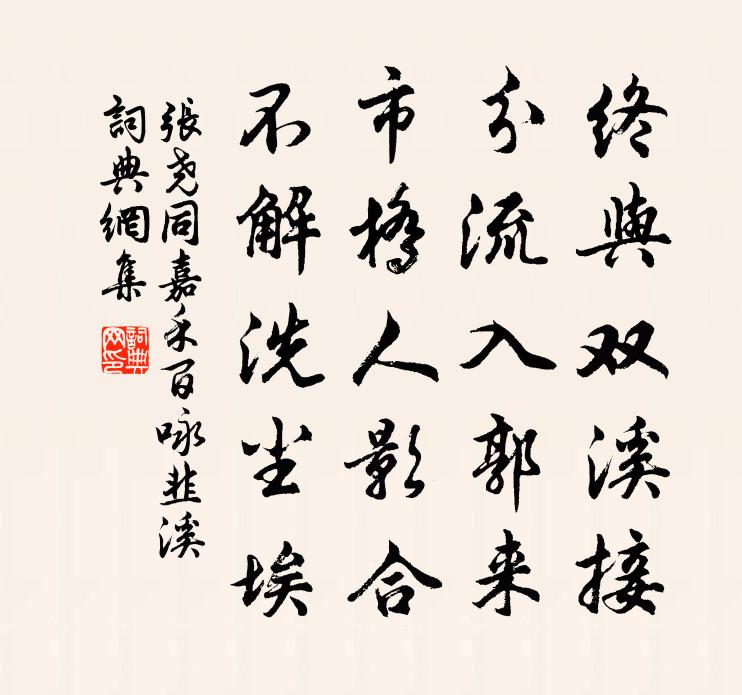 终与双溪接
分流入郭来
市桥人影合
不解洗尘埃
張尧同嘉禾百咏韭溪
詞典網集
詞典网印